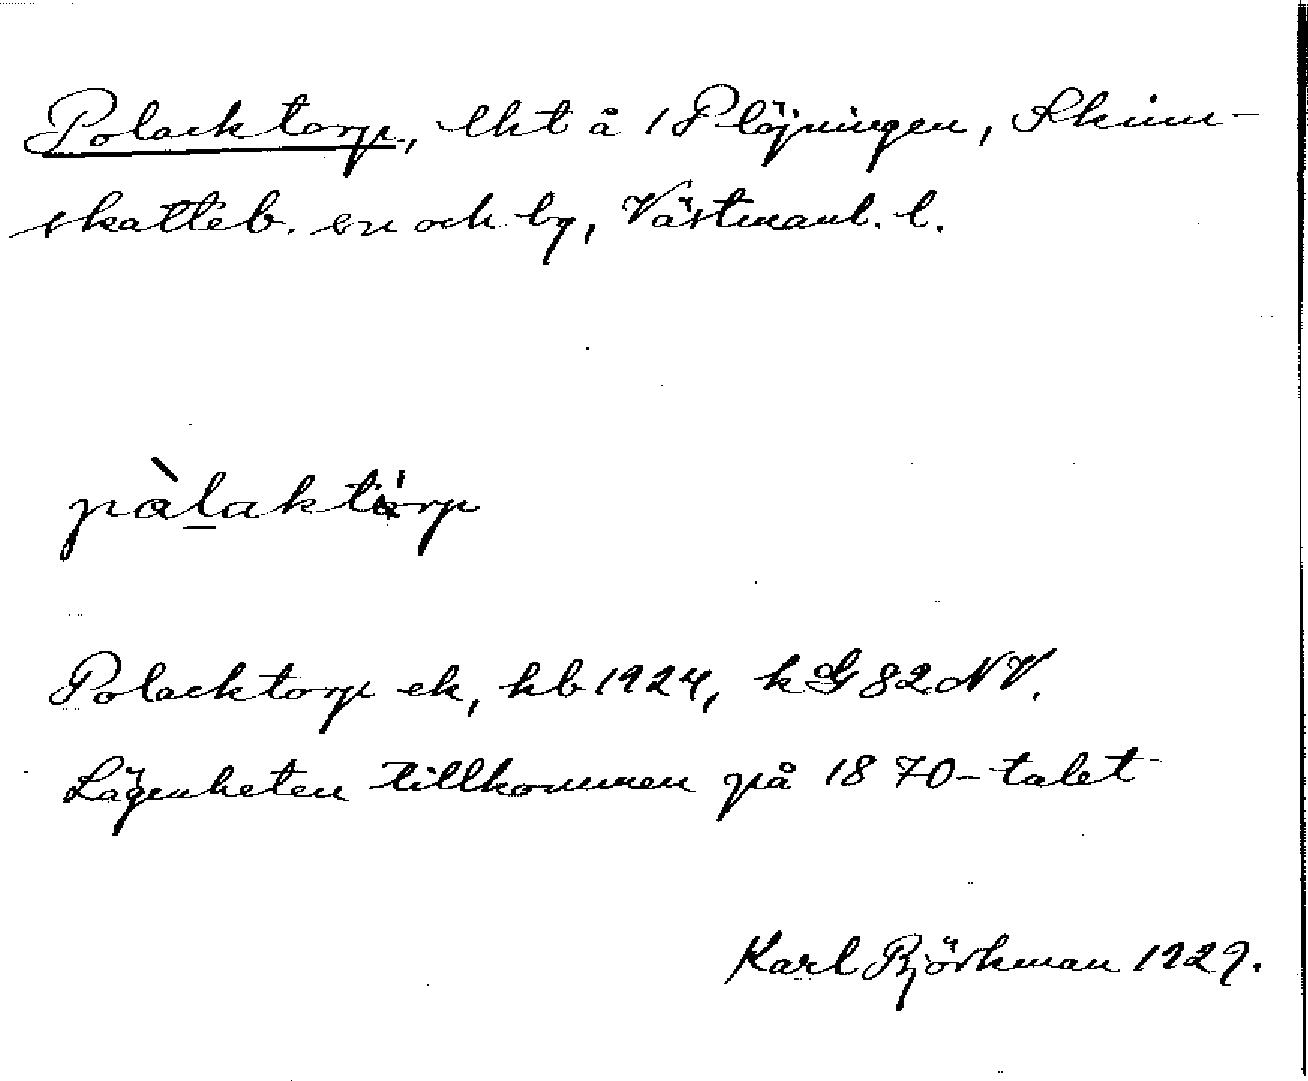 Polacktorp, lht å 1 Plöjningen, Skinn-
skatteb. sn och by, Västmanl. l.
pàlaktårp
Polacktorp ek, hb 1924, k G 82 NV.
Lägenheten tillkommen på 1870-talet
Karl Björkman 1929.